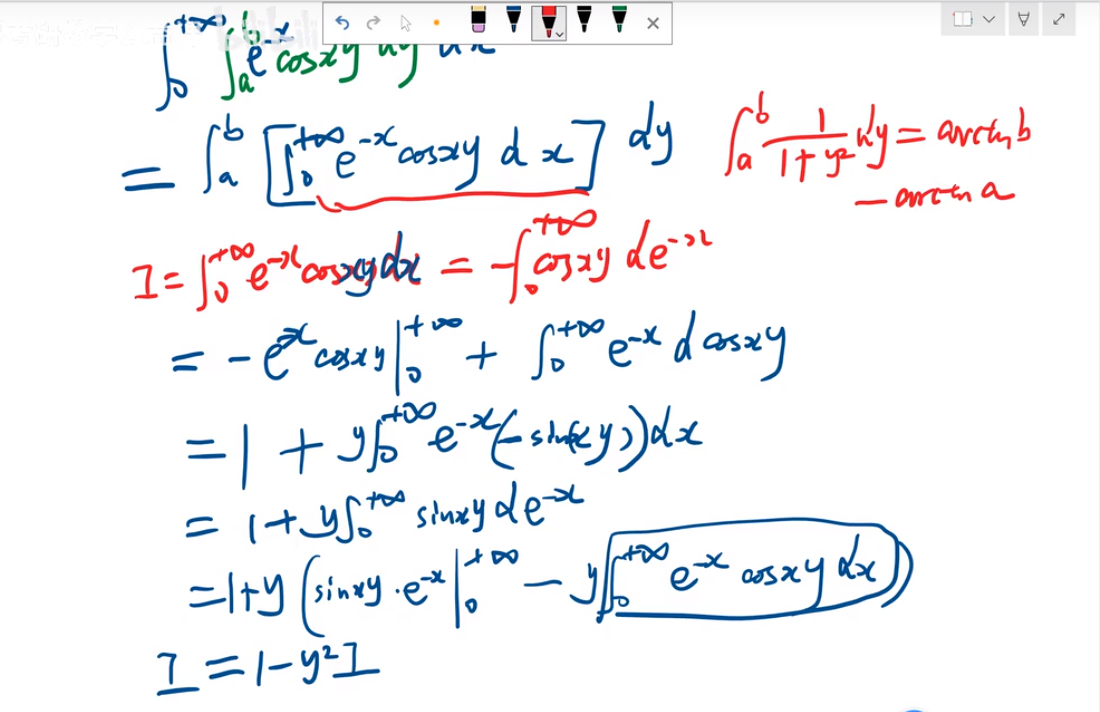 ∫₀^{+∞} ∫ₐ^b e^{-x} cosxy dy dx
= ∫ₐ^b [∫₀^{+∞} e^{-x} cosxy d x] dy
∫ₐ^b 1/(1+y²) dy = arctan b
— arctan a
I = ∫₀^{+∞} e^{-x} cosxy dx = -∫₀^{+∞} cosxy de^{-x}
= - e^{-x} cosxy |₀^{+∞} + ∫₀^{+∞} e^{-x} d cosxy
= 1 + y∫₀^{+∞} e^{-x} (-sin(xy)) dx
= 1 + y∫₀^{+∞} sinxy de^{-x}
= 1+y (sinxy · e^{-x} |₀^{+∞} - y∫₀^{+∞} e^{-x} cosxy dx)
I = 1 - y² I